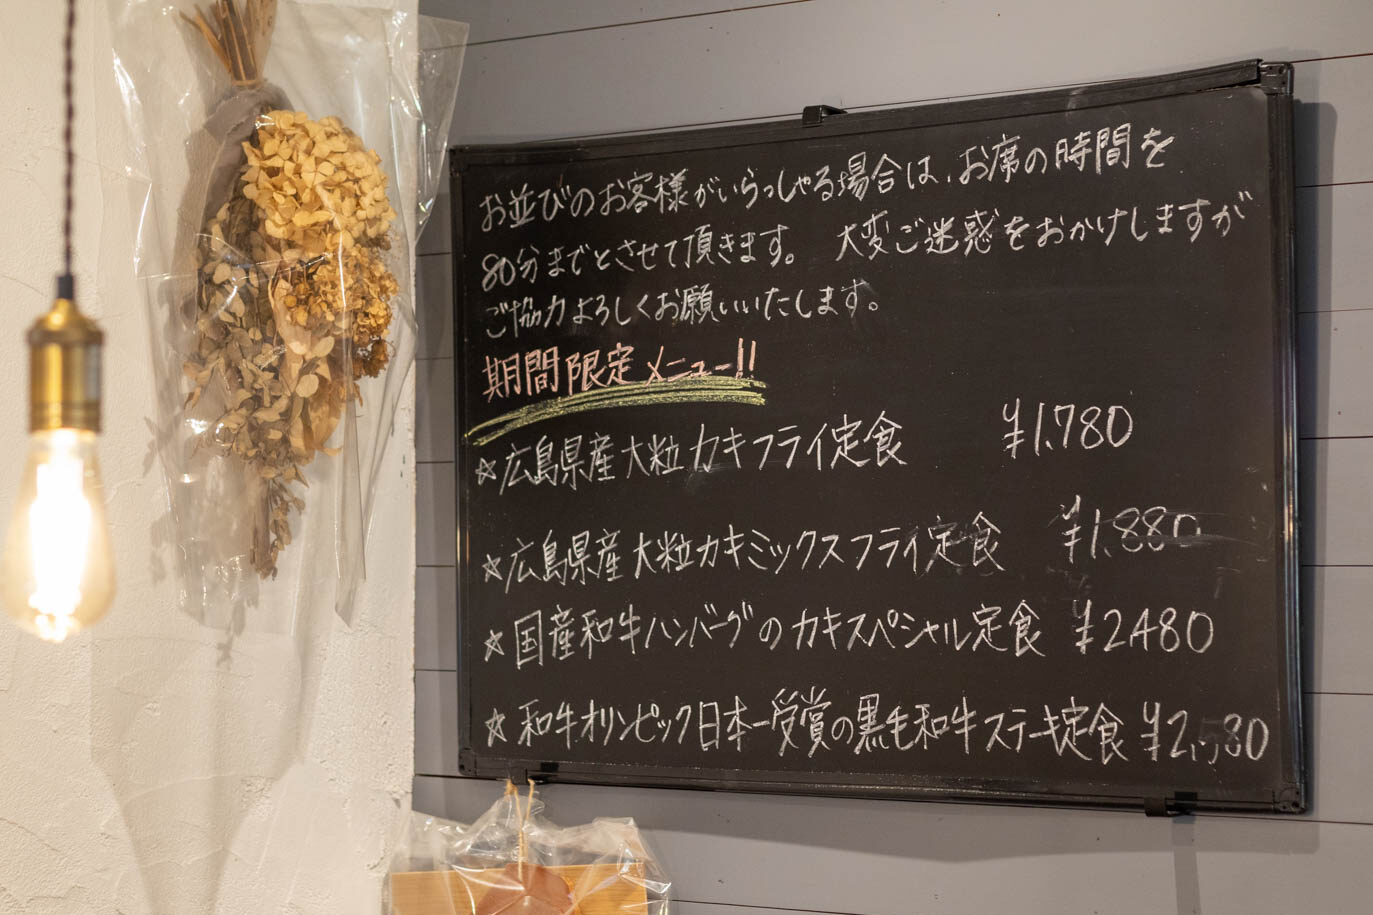 お並びのお客様がいらっしゃる場合は、お席の時間を
80分までとさせて頂きます。 大変ご迷惑をおかけしますが
ご協力よろしくお願いいたします。
期間限定メニュー!!
☆広島県産大粒カキフライ定食 ¥1,780
☆広島県産大粒カキミックスフライ定食 ¥1,880
☆国産和牛ハンバーグのカキスペシャル定食 ¥2,480
☆和牛オリンピック日本一受賞の黒毛和牛ステーキ定食